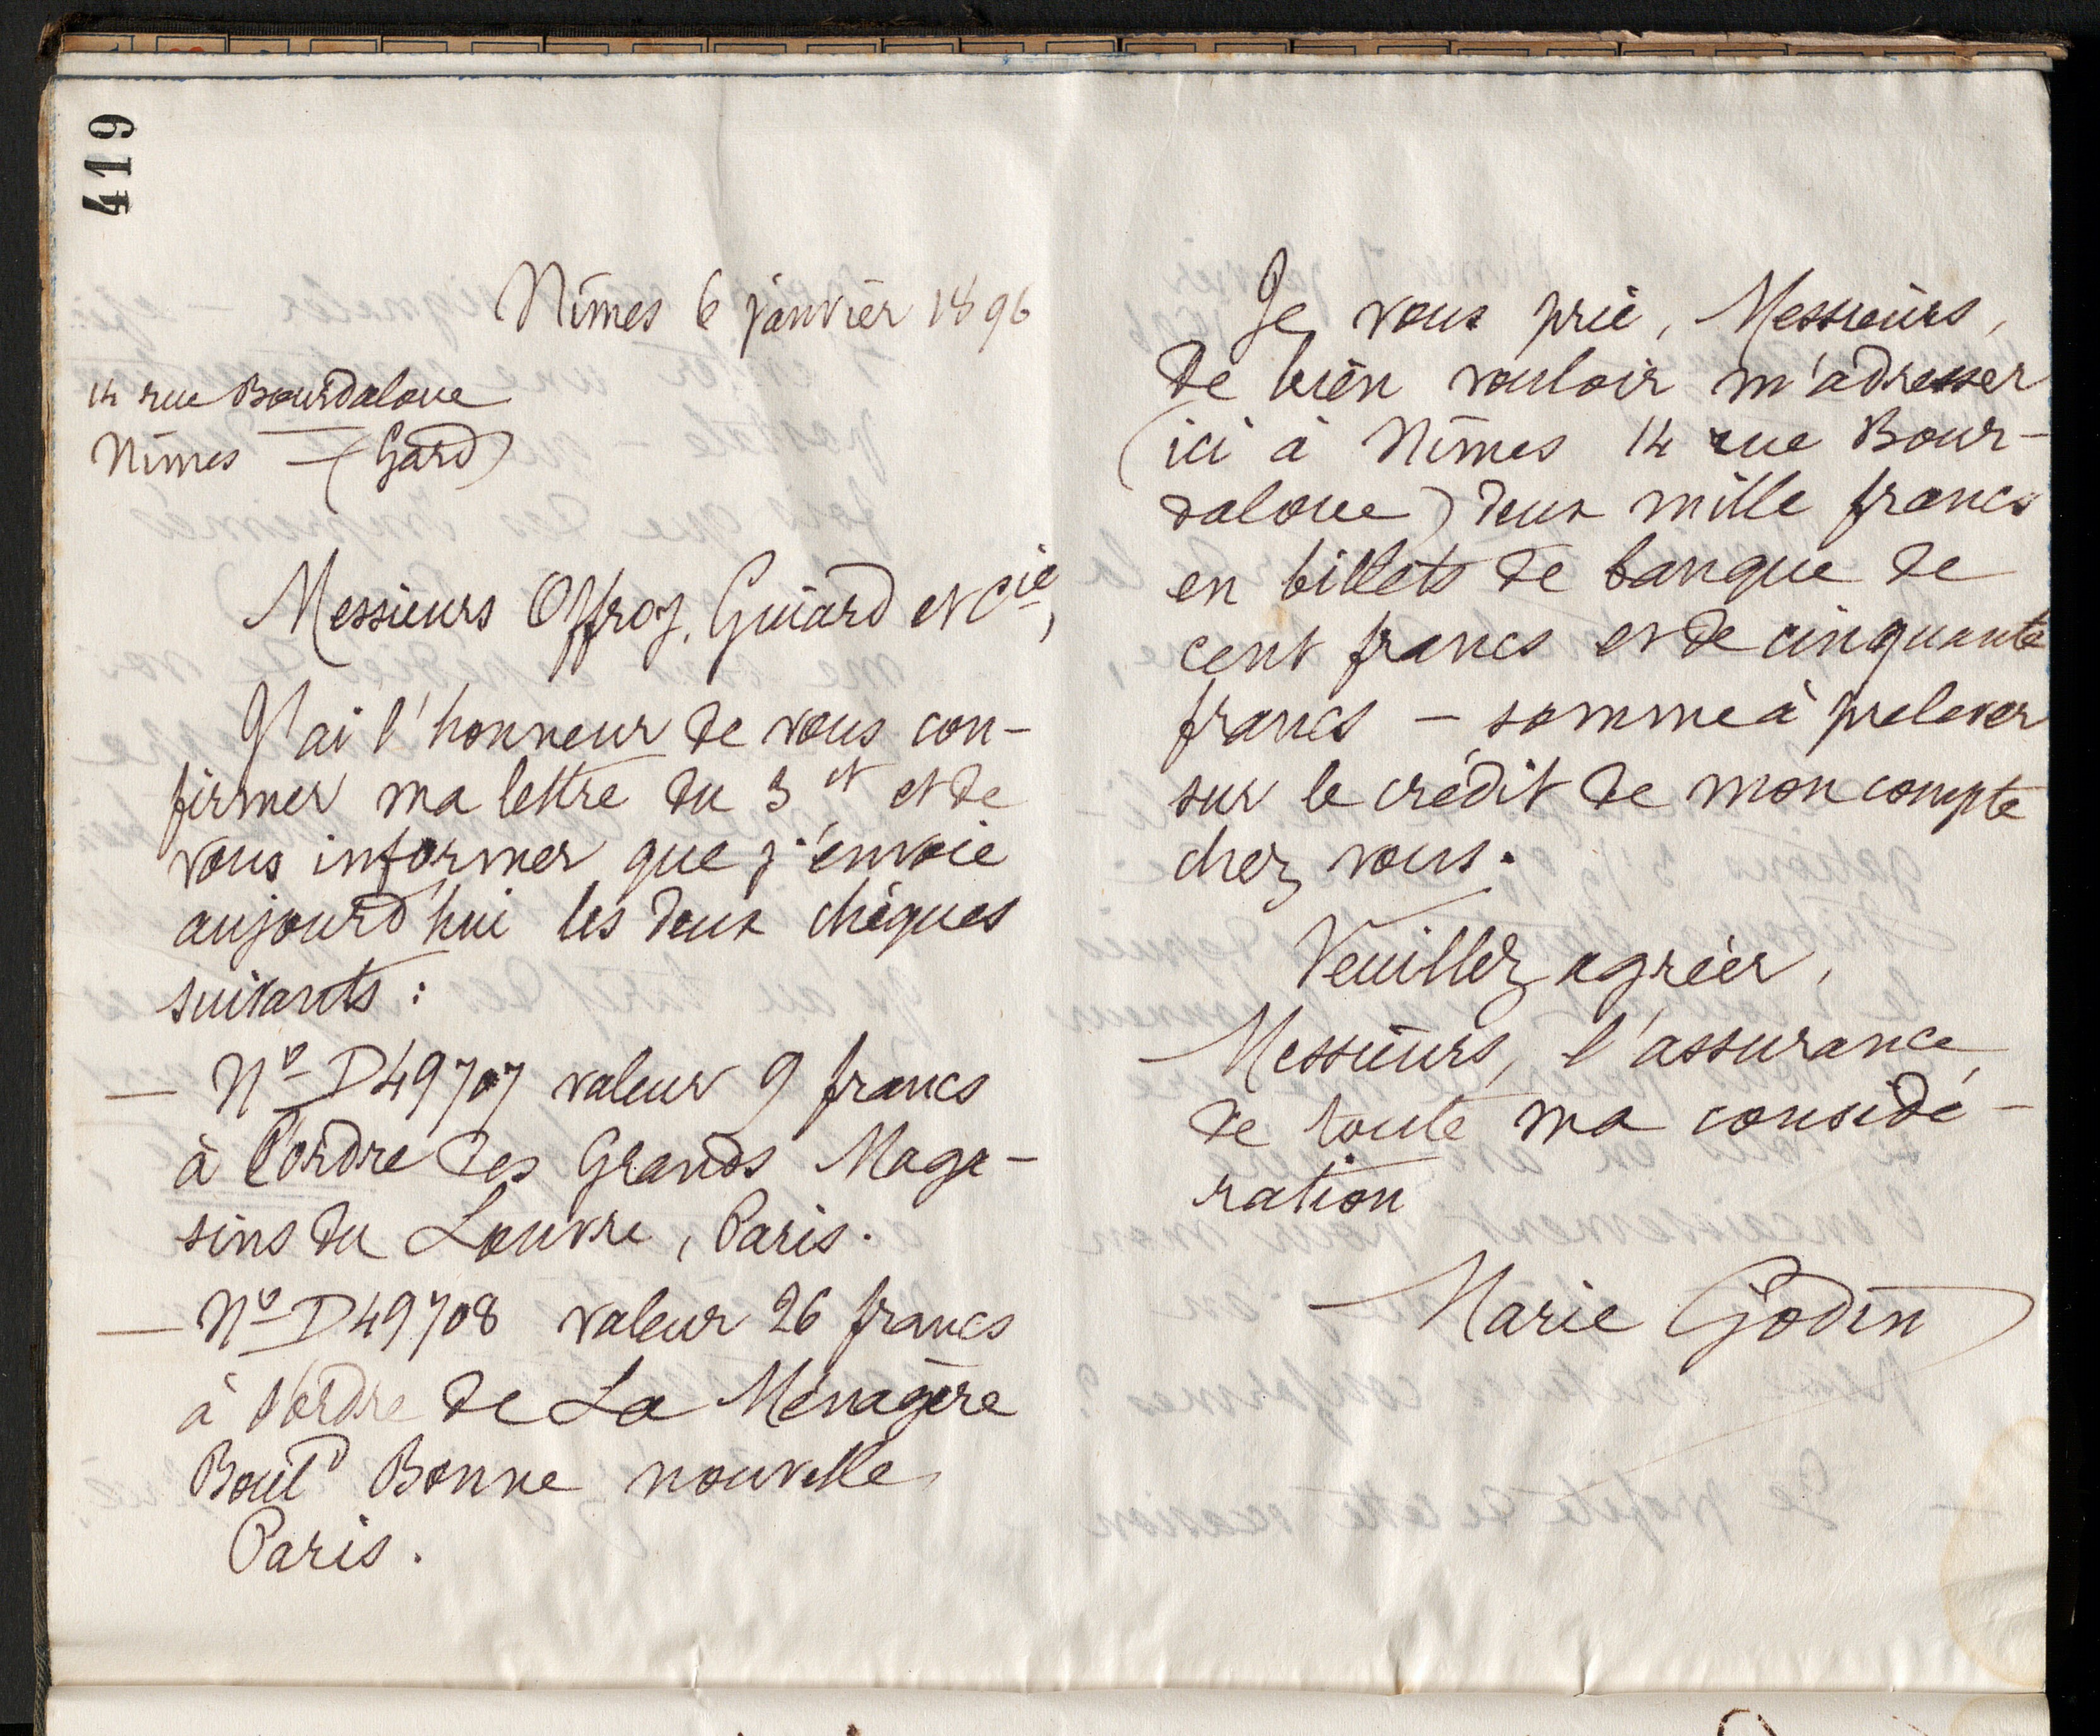 419
Nîmes 6 janvier 1896
14 rue Bourdaloue
Nîmes — (Gard)
Messieurs Offroy, Guiard et Cie,
J'ai l'honneur de vous con-
firmer ma lettre du 3 ct et de
vous informer que j'envoie
aujourd'hui les deux chèques
suivants :
— No D49707 valeur 9 francs
à l'ordre des Grands Maga-
sins du Louvre, Paris.
— No D49708 valeur 26 francs
à l'ordre de La Ménagère
Bould Bonne nouvelle
Paris.
Je vous prie, Messieurs,
de bien vouloir m'adresser
(ici à Nîmes 14 rue Bour-
daloue) deux mille francs
en billets de banque de
cent francs et de cinquante
francs — somme à prelever
sur le crédit de mon compte
chez vous.
Veuillez agréer,
Messieurs, l'assurance
de toute ma considé-
ration
Marie Godin